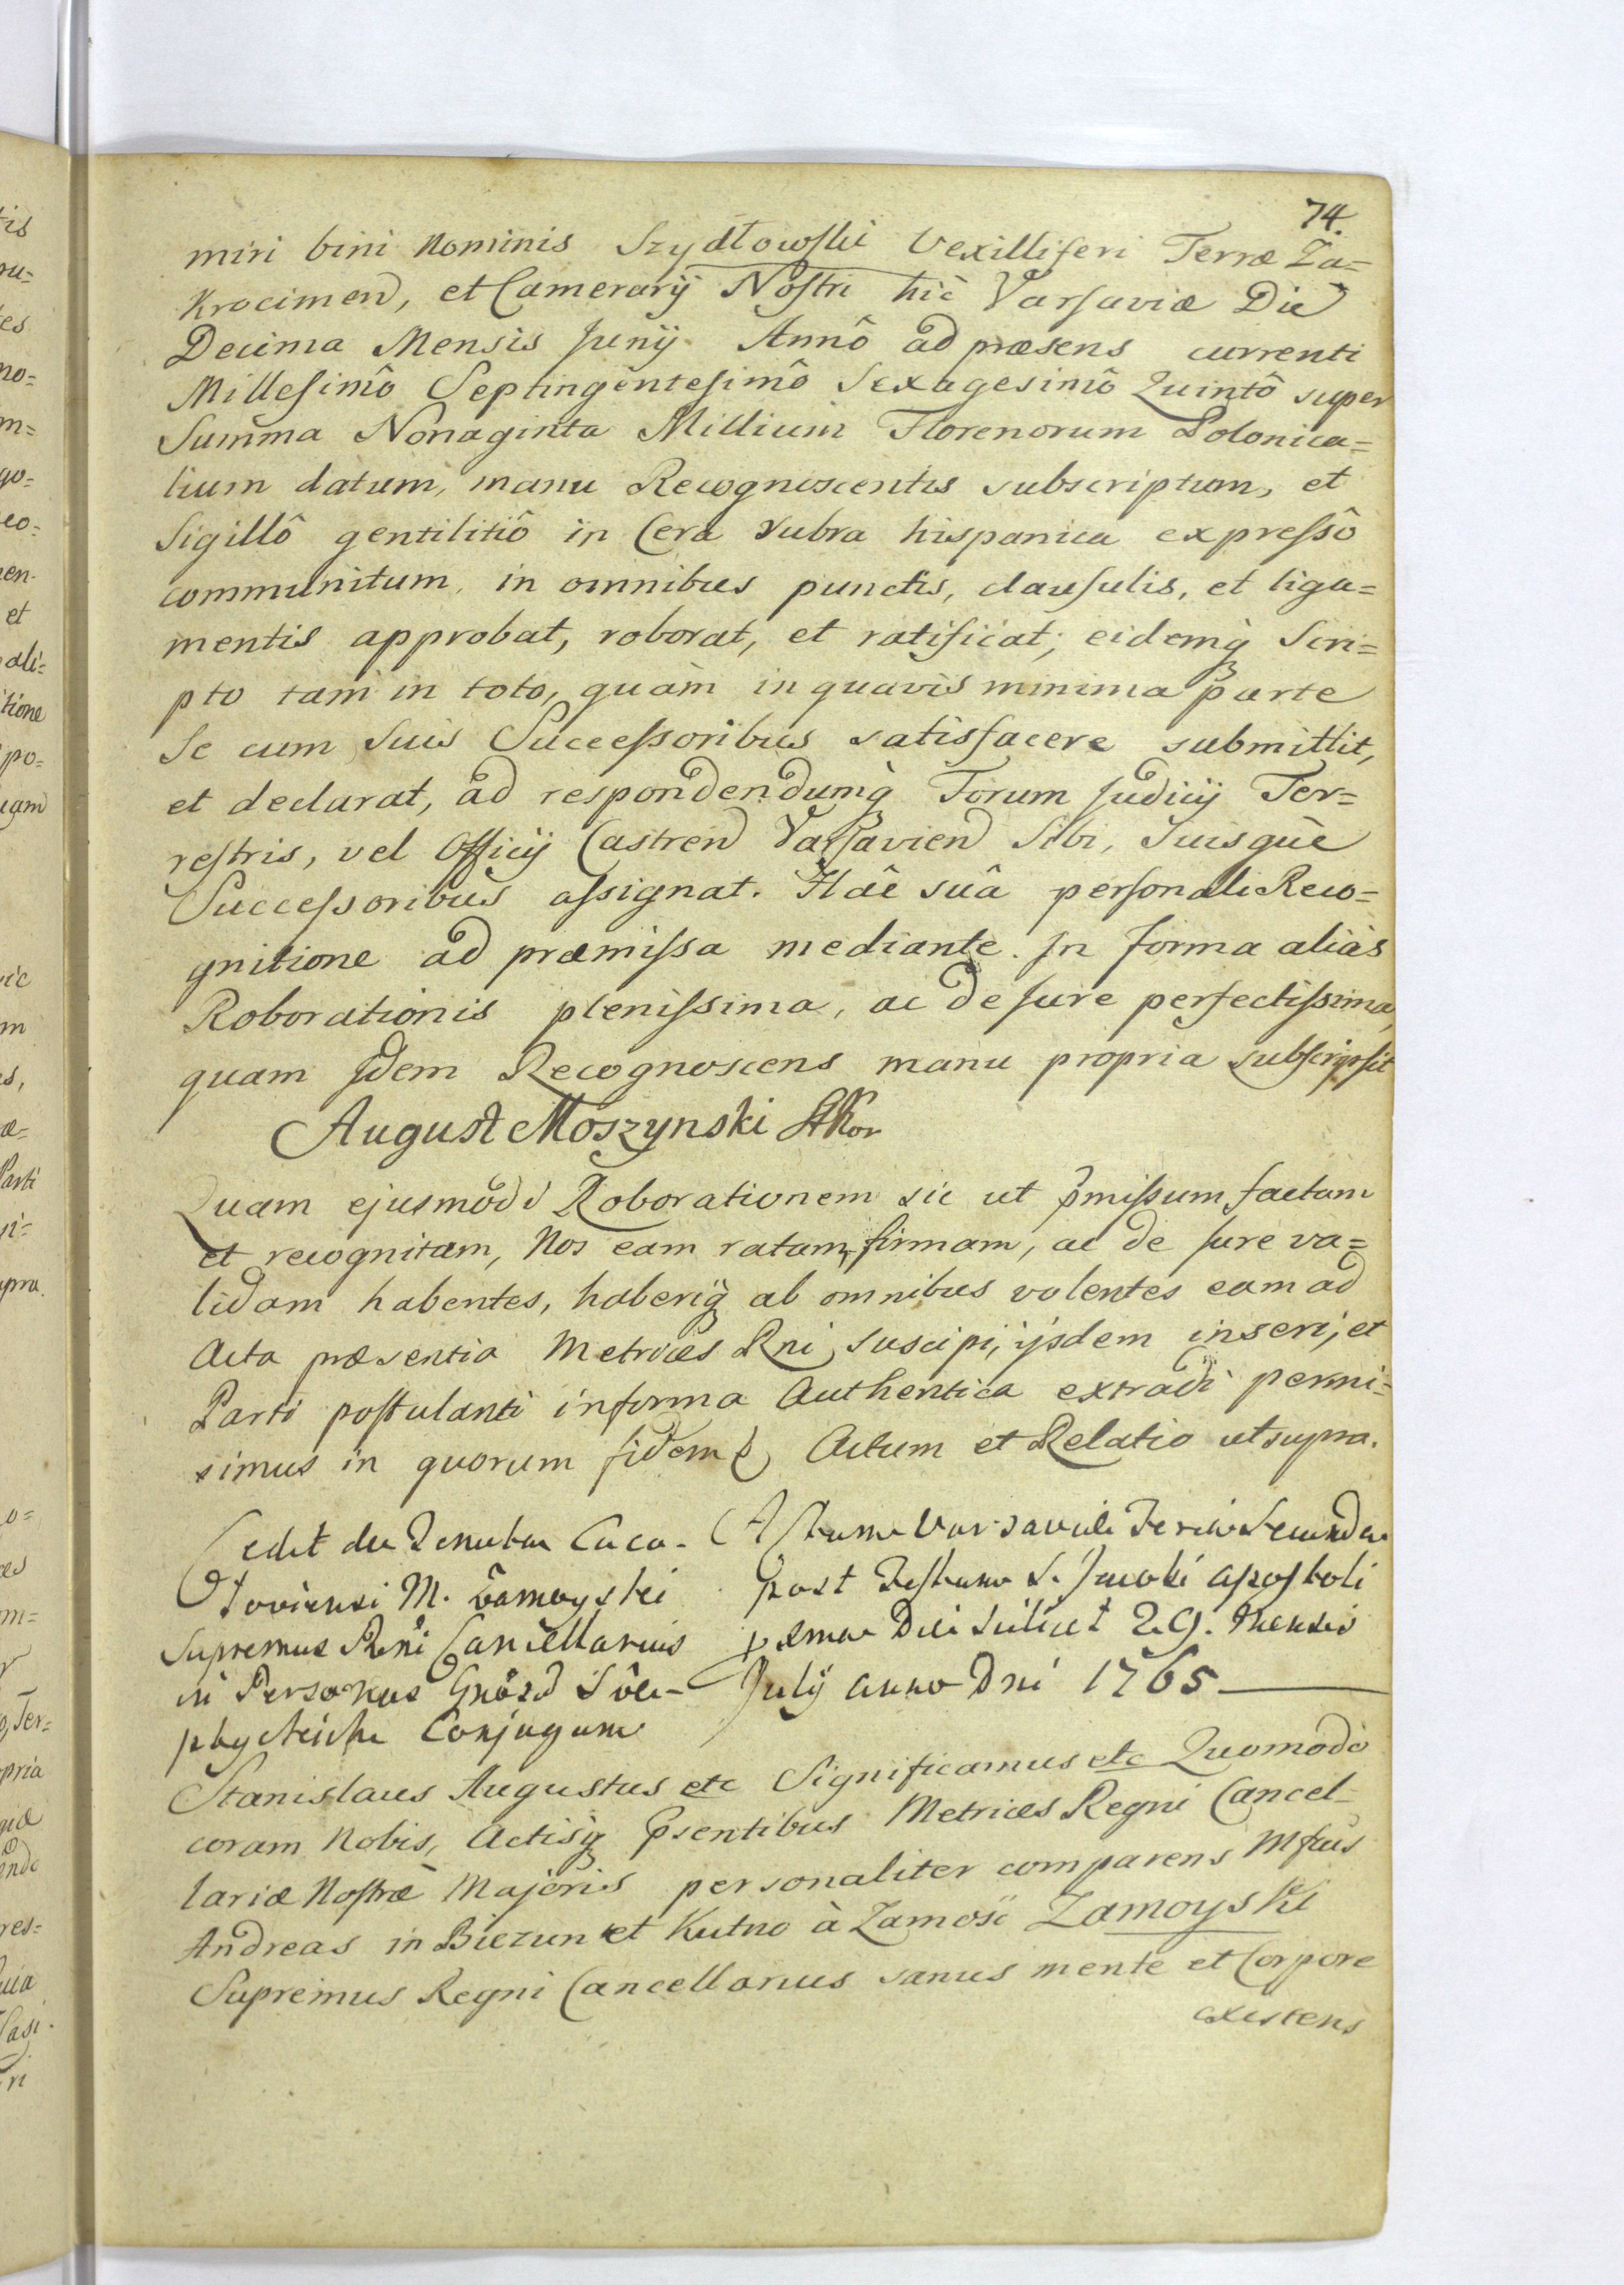 74.
miri bini Nominis Szydłowski Vexilliferi Terræ Za=
Krocimen, et Camerarij Nostri hîc Varsaviæ Die
Decima Mensis Junij Annô ad præsens currenti
Millesimô Septingentesimô Sexagesimô Quintô super
Summa Nonaginta Millium Florenorum Polonica=
lium datum, manu Recognoscentis subscriptum, et
Sigillô gentilitiô in Cera rubra hispanica expressô
communitum, in omnibus punctis, clausulis, et liga=
mentis approbat, roborat, et ratificat; eidemq̀ Scri=
pto tam in toto, quàm in quavis minima parte
Se cum Suis Successoribus satisfacere submittit,
et declarat, ad respondendumq̀ Forum Judicij Ter=
restris, vel Officij Castren Varsavien Sibi, Suisquè
Successoribus assignat. Hâc suâ personali Reco=
gnitione ad præmissa mediante. In forma aliàs
Roborationis plenissima, ac de Jure perfectissima,
quam Idem Recognoscens manu propria subscripsit
August Moszynski StKor
Quam ejusmodi Roborationem sic ut p̃missum factam
et recognitam, Nos eam ratam, firmam, ac de Jure va=
lidam habentes, haberiq̀ ab omnibus volentes eam ad
Acta præsentia Metrices Rni suscipi, ijsdem inseri, et
Parti postulanti in forma Authentica extradi permi=
simus in quorum fidem & Actum et Relatio ut supra.
Cedit de Tenuta Caco-
toviensi M. Zamoyski
Supremus Rni Cancellarius
in Personas Gnôsd
phyteicha Conjugum
Actum Varsaviæ Feria Secunda
post Festum S. Jacobi Apostoli
Die Scilicet 29. Mensis
July anno Dni 1765
Stanislaus Augustus etc Significamus etc Quomodo
coram Nobis, Actisq̀ p̃sentibus Metrices Regni Cancel-
lariæ Nostræ Majoris personaliter comparens Mfcus
Andreas in Biezun et Kutno à Zamość Zamoyski
Supremus Regni Cancellarius sanus mente et Corpore
existens